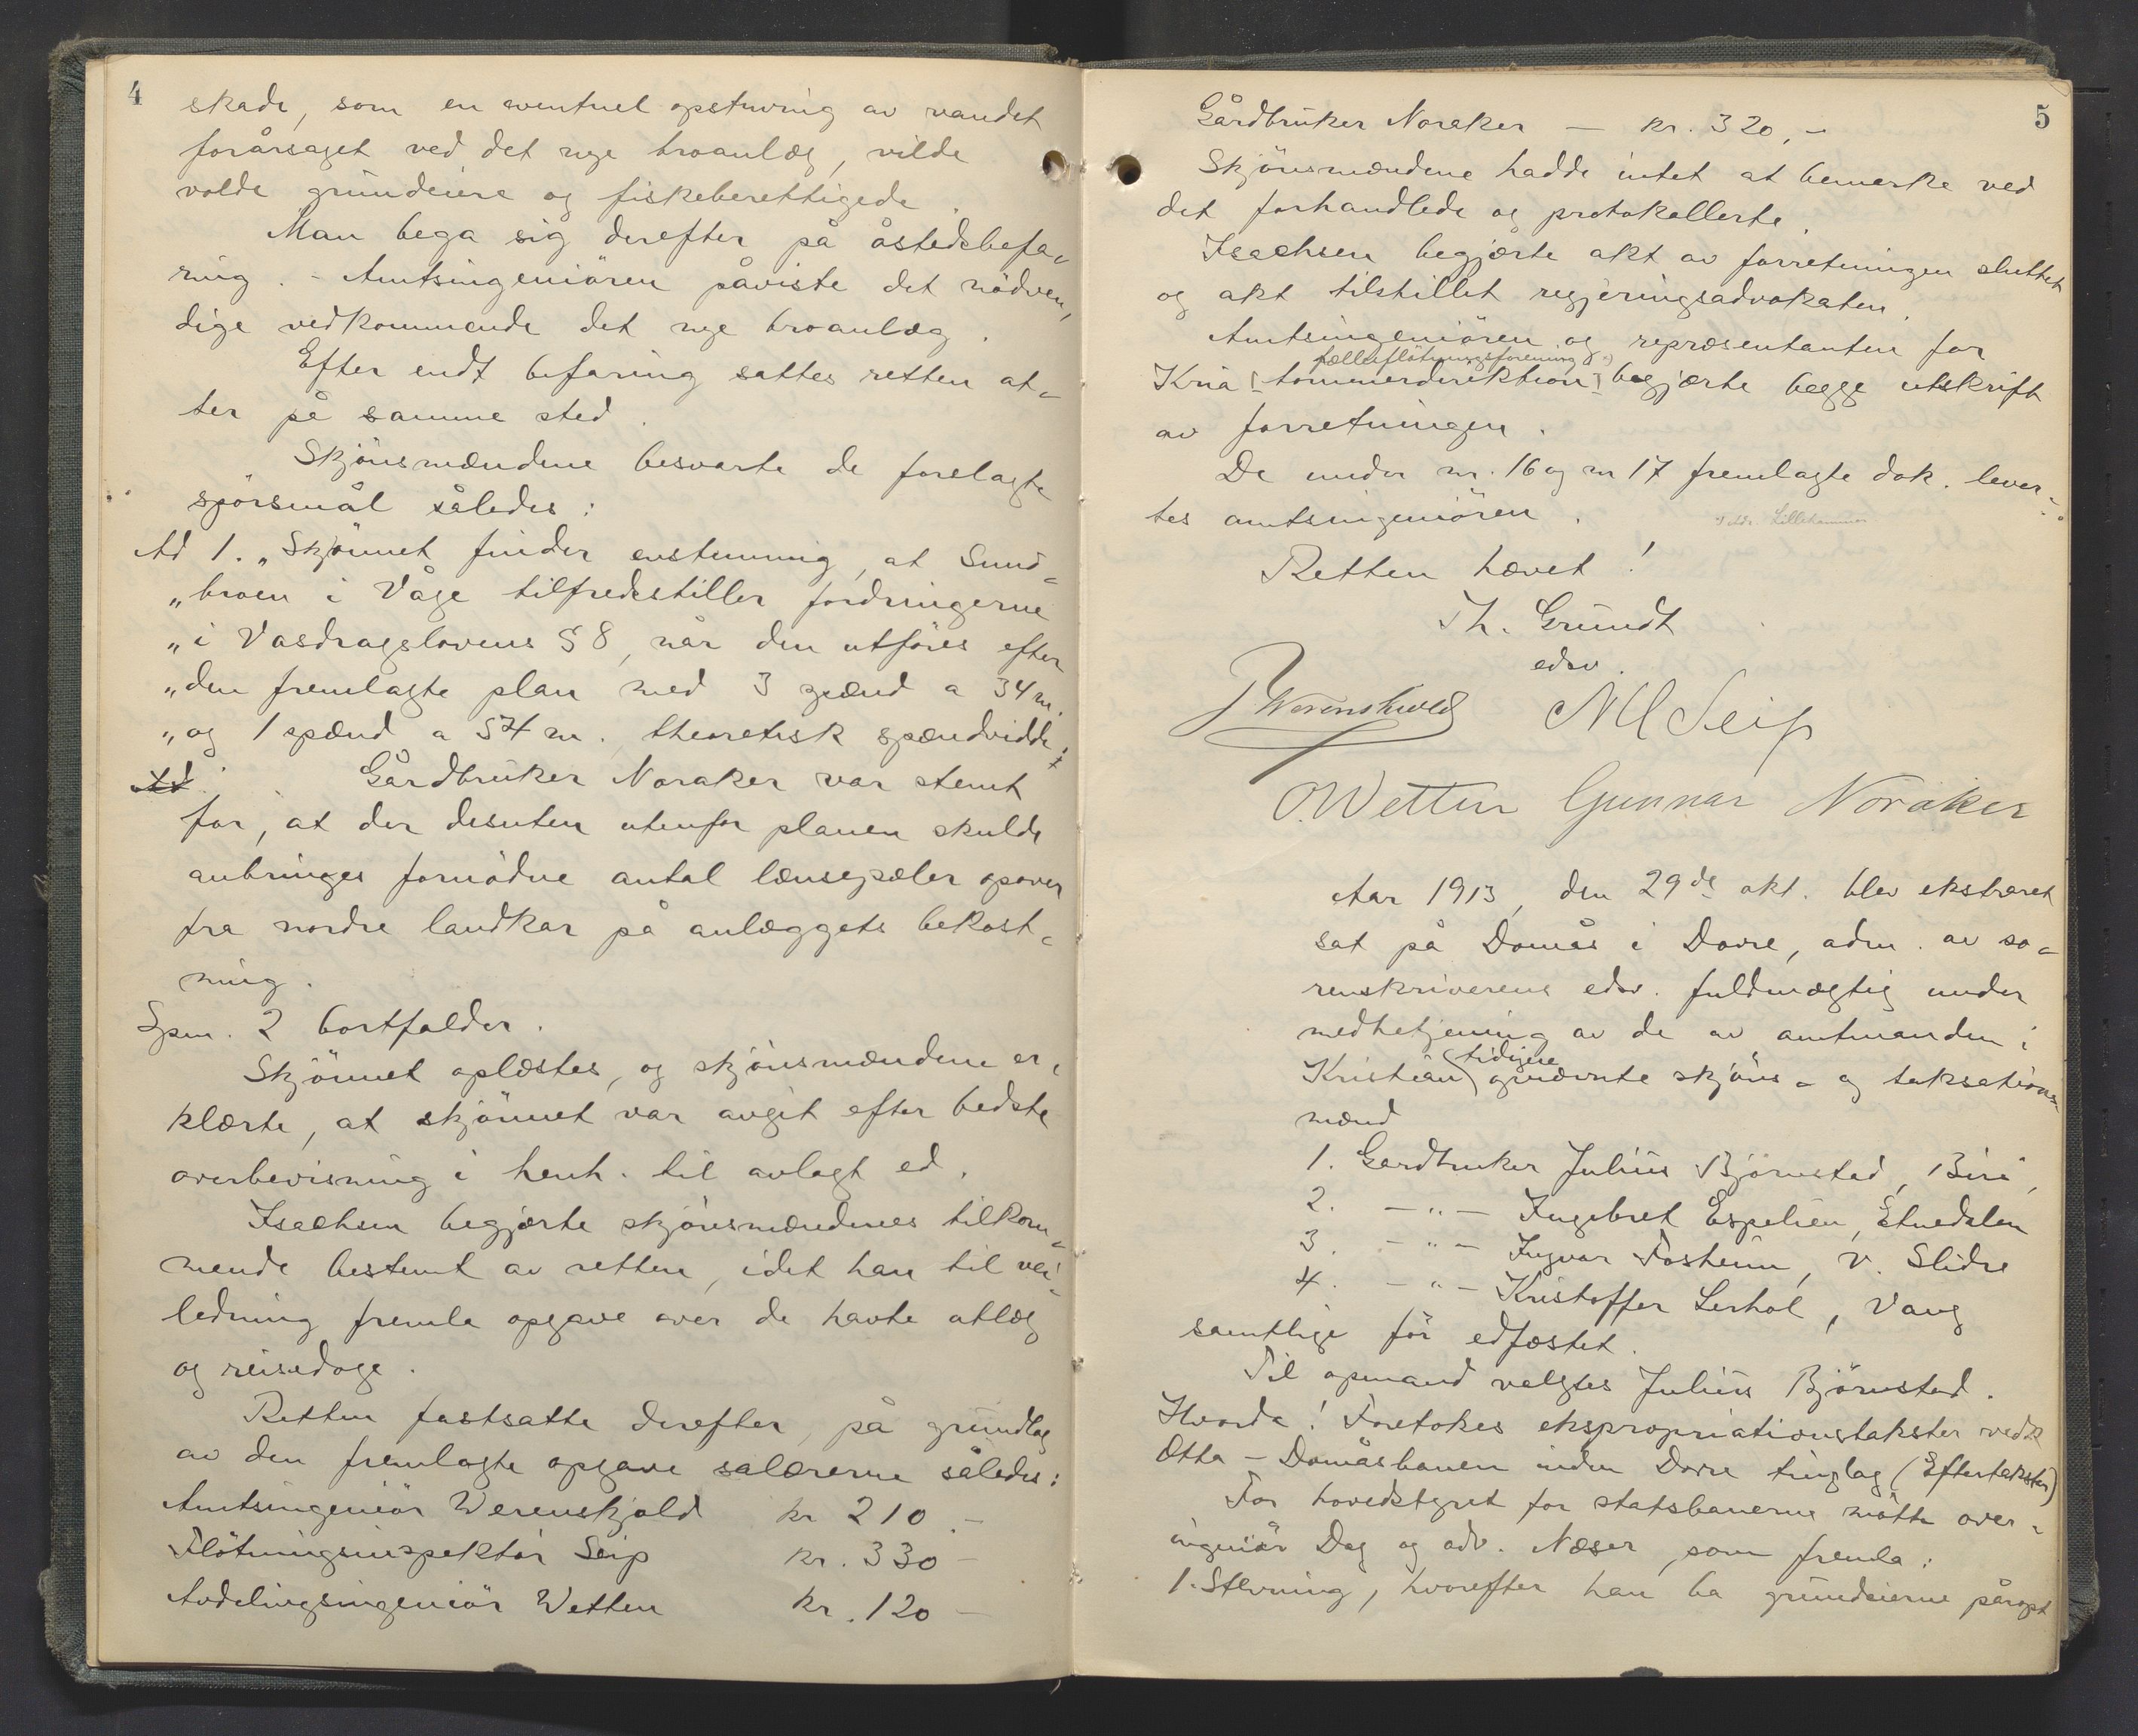 4
skade, som en eventuel opstuving av vandet
forårsaget ved det nye broanlæg, vilde
volde grundeiere og fiskeberettigede.
Man bega sig derefter på åstedsbefa-
ring. - Amtsingeniören påviste det nödven-
dige vedkommende det nye broanlæg.
Efter endt befaring sattes retten at-
ter på samme sted.
Skjönsmændene besvarte de forelagte
spörsmål således:
Ad 1. „Skjönnet finder enstemmig, at Sund-
„broen i Våge tilfredsstiller fordringerne
„i Vasdragslovens § 8, når den utföres efter
„den fremlagte plan med 3 spænd a 34 m.
„og 1 spænd a 54 m. theoretisk spændvidde:
Ad
Gårdbruker Noraker var stemt
for, at der desuten utenfor planen skulde
anbringes fornödne antal lænsepæler opover
fra nordre landkar på anlæggets bekost-
ning.
Spm. 2 bortfalder.
Skjönnet oplæstes, og skjönsmændene er-
klærte, at skjönnet var avgit efter bedste
overbevisning i henh. til avlagt ed.
Isachsen begjærte skjönsmændenes tilkom-
mende bestemt av retten, idet han til vei-
ledning fremla opgave over de havte utlæg
og reisedage.
Retten fastsatte derefter, på grundlag
av den fremlagte opgave salærerne således:
Amtsingeniör Werenskjold kr 210.-
Flötningsinspektör Seip kr. 330 -
Avdelingsingeniör Wetten kr. 120 -
5
Gårdbruker Noraker - kr. 320,-
Skjönsmændene hadde intet at bemerke ved
det forhandlede og protokollerte.
Isachsen begjærte akt av forretningen sluttet
og akt tilstillet regjeringsadvokaten.
Amtsingeniören og repræsentanten for
fællesflötningsforening
Kria [tommerdirektion] begjærte begge utskrift
av forretningen.
De under nr. 16 og nr 17 fremlagte dok. lever-
tes amtsingeniören.
Lillehammer
Retten hævet!
Th. Grundt
edsv.
Werenskiold
M Seip
O. Wetten Gunnar Noraker
Aar 1913, den 29de okt. blev ekstraret
sat på Domås i Dovre, adm. av so-
renskriverens edsv. fuldmægtig under
medbetjening av de av amtmanden i
tidligere
Kristian opnævnte skjöns- og taksations-
mænd
1. Gardbruker Julius Björnstad, Biri,
2. -„- Ingebret Espelien, Etnedalen
3. -„- Ingvar Fosheim, V. Slidre
4. -„- Kristoffer Lerhol, Vang
samtlige för edfæstet.
Til opmand valgtes Julius Björnstad.
Hvorda! Foretokes ekspropriationstakster vedk
Otta - Domåsbanen inden Dovre tinglag (Eftertakster)
For hovedstyret for statsbanerne mötte over-
ingeniör Dag og adv. Næser, som fremla:
1. Stevning, hvorefter han ba grundeierne påropt